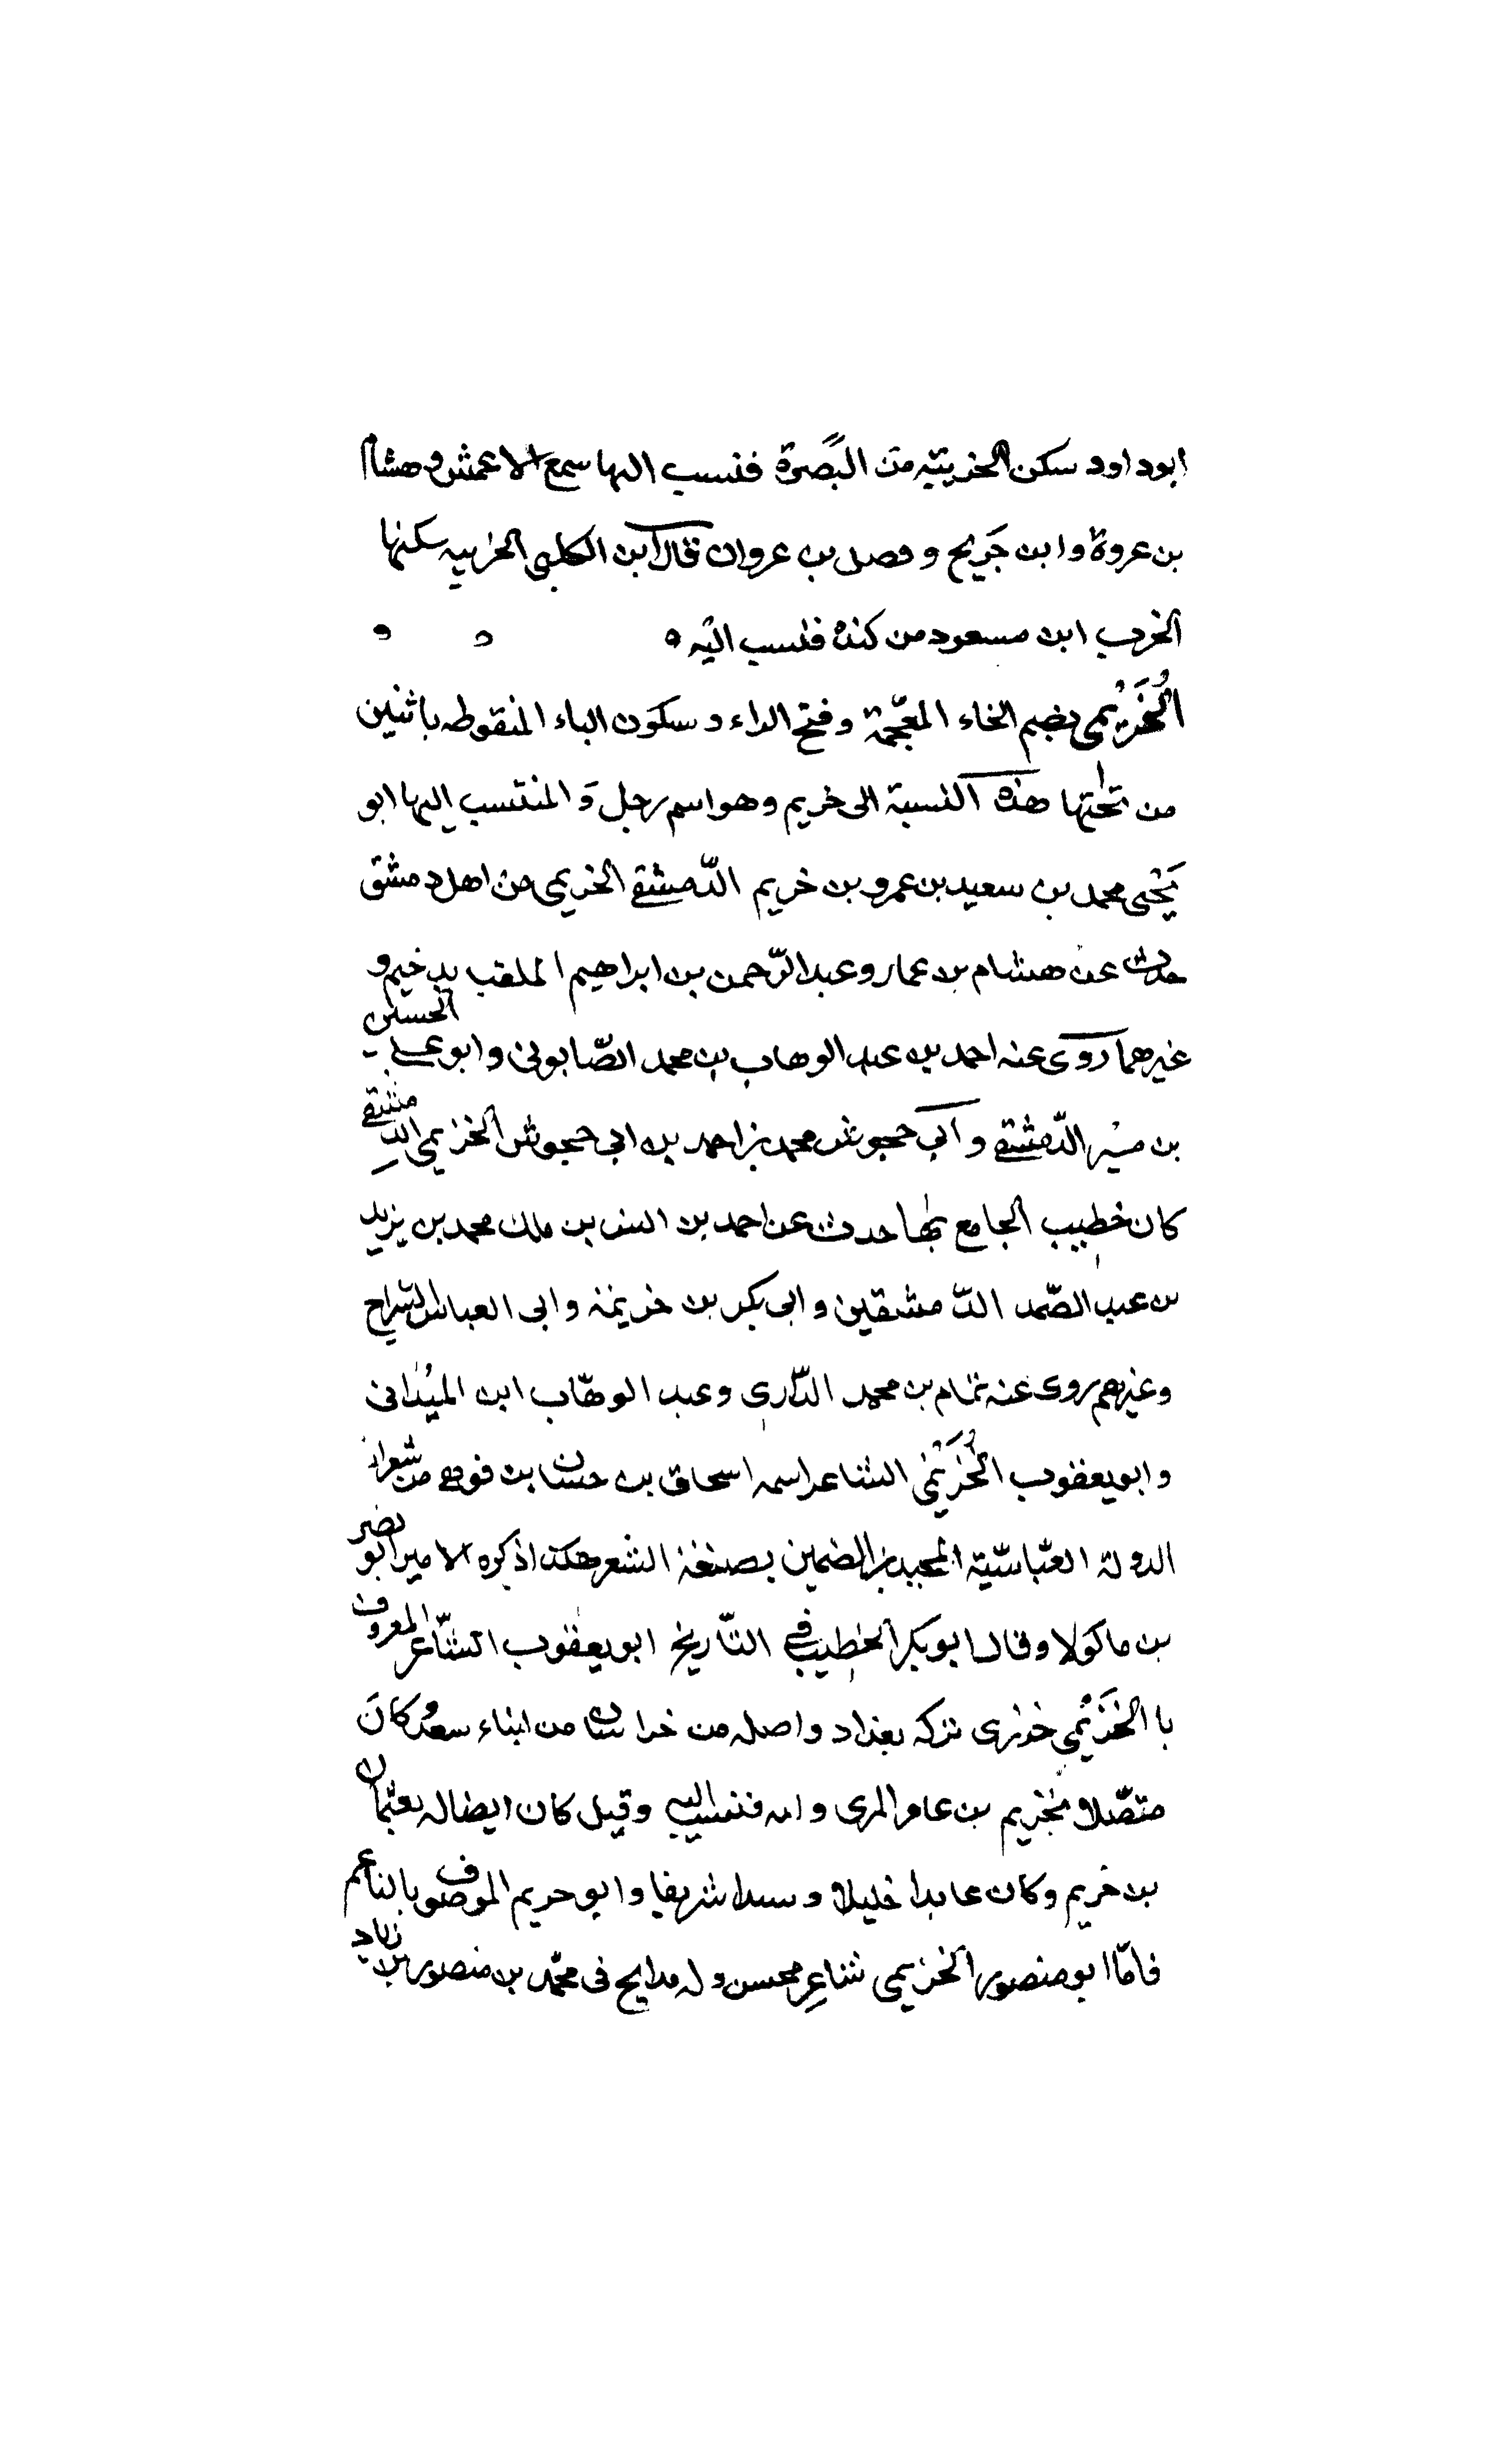 ابو داود سكن الخريبيه من البصرة فنسب اليها سمع الاعمش و هشام
بن عروة وابن جريح و فصل بن عروان قال ابن الكلبى الخريبيه سكنها
الخريب ابن مسعود من كنده فنسب اليه
الخُرَيْمى بضم الخاء المعجمة وفتح الراء و سكون الياء المنقوطه باثنين
من تحتها هذه النسبة الى خريم وهو اسم رجل وَ المنتسب اليها ابو
يَحْيى محمد بن سعيد بن عمرو بن خريم الدّمشقى الخريمى من اهل دمشق
حدث عن هشام بن عمار وعبد الرّحمن بن ابراهيم الملقب بدحيم و
غيرهما روى عنه احمد بن عبد الوهاب بن محمد الصّابونى وابو على الحسين
بن منير الدّمشقى و ابى حجوش محمد بن احمد بن ابى حجوش الخريمى الدّمشقى
كان خطيب الجامع بها حدث عن احمد بن انس بن ملك محمد بن يزيد
بن عبد الصّمد الدّمشقين وابى بكر بن خزيمه وابى العباس السّراج
وغيرهم روى عنه تمام بن محمد الرّازى وعبد الوهّاب ابن الميْدانى
وابو يعقوب الخُرَيْمى الشاعر اسمه اسحاق بن حسان بن قوهى من شعراء
الدولة العبّاسيّة المجيدين بصنعة الشعر هكذا ذكره الامير ابو نصر
بن ماكولا وقال ابو بكر الخطيب فى التّاريخ ابو يعقوب الشّاعر المعروف
با الخُرَيْمى جزرى نزل بغداد واصله من خراسان من ابناء سعد كانَ
متصّلا بخريم بن عامر المرى و اله فنسب اليه وقيل كان ايضاله بعثمان
بن خريم وكان عابدا خليلا و سيدا شريفا وابو خريم الموصوف بالناعم
فامّا ابو منصور الخريمى شاعر محسن وله مدايح فى محمّد بن منصور بن زياد